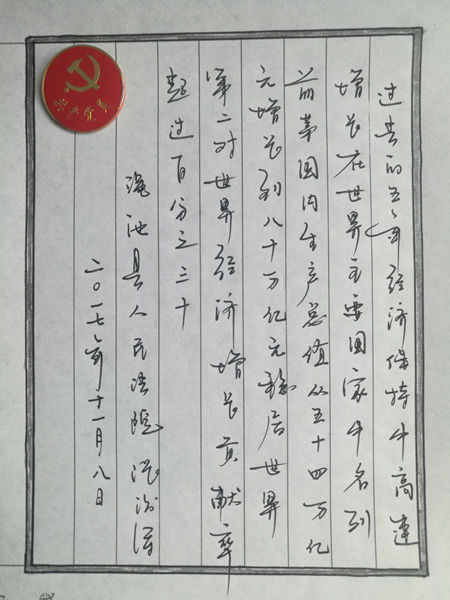 过去的五年经济保持中高速
增长在世界主要国家中名列
前茅国内生产总值从五十四万亿
元增长到八十万亿元稳居世界
第二对世界经济增长贡献率
超过百分之三十
渑池县人民法院
二〇一七年十一月八日
共产党员